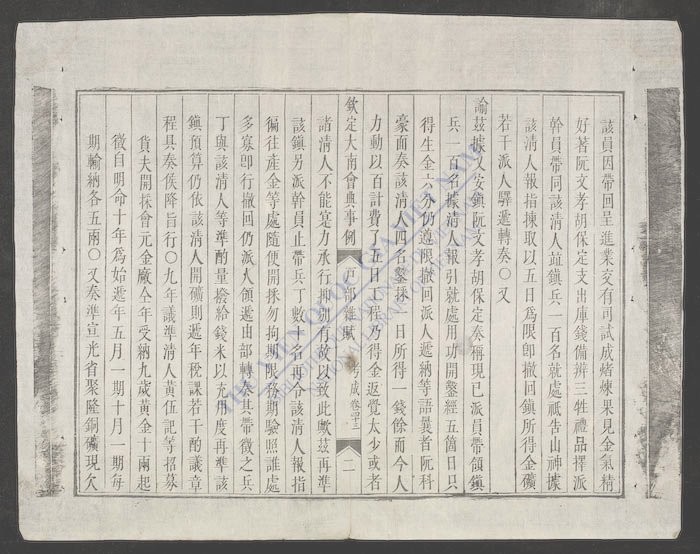 該員因帶回呈進業交有司試成焙煉果見金氣精
好著阮文孝胡保定支出庫錢備辨三牲禮品擇派
幹員帶同該清人並鎮兵一百名就處祇告山神據
該清人報指揀取以五日爲限即撤回鎮所得金礦
若干派人驛遞轉奏○又
諭茲據乂安鎮阮文孝胡保定奏稱現已派員帶領鎮
兵一百名據清人報引就處用功開鑿經五箇日只
得生金六分仍遵限撤回派人遞納等語曩者阮科
豪面奏該清人四名鑿採一日所得一錢餘而今人
力動以百計費了五日工程乃得金返覺太少或者
欽定大南會典事例 戶部雜賦 卷四十二 二
諸清人不能寔力承行抑別有故以致此歟茲再準
該鎮另派幹員止帶兵丁數十名再令該清人報指
徧往產金等處隨便開採勿拘期限務期驗照誰處
多寡即行撤回仍派人領遞由部轉奏其帶徵之兵
丁與該清人等準酌量撥給錢米以充用度再準該
鎮預算仍依該清人開礦則遞年稅課若干酌議章
程具奏候降旨行○九年議準清人黃伍記等招募
貨夫開採會元金廠仝年受納九歲黃金十兩起
徵自明命十年爲始遞年五月一期十月一期每
期輸納各五兩○又奏準宣光省聚隆銅礦現欠